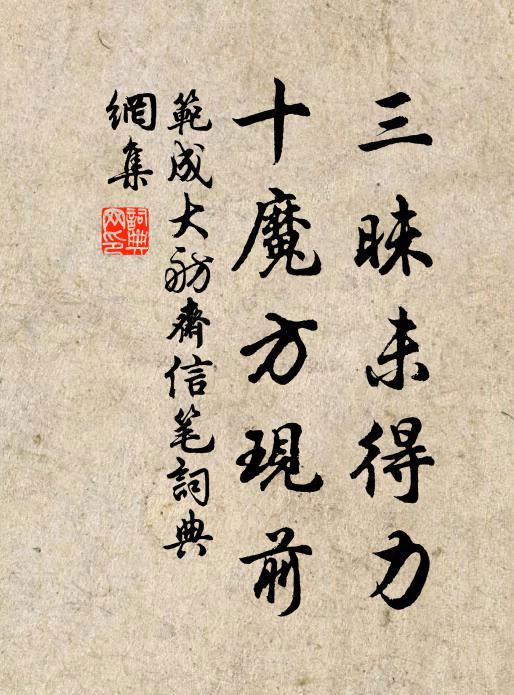 三昧未得力
十魔方現前
範成大舫齋信笔詞典
網集
詞典
网印